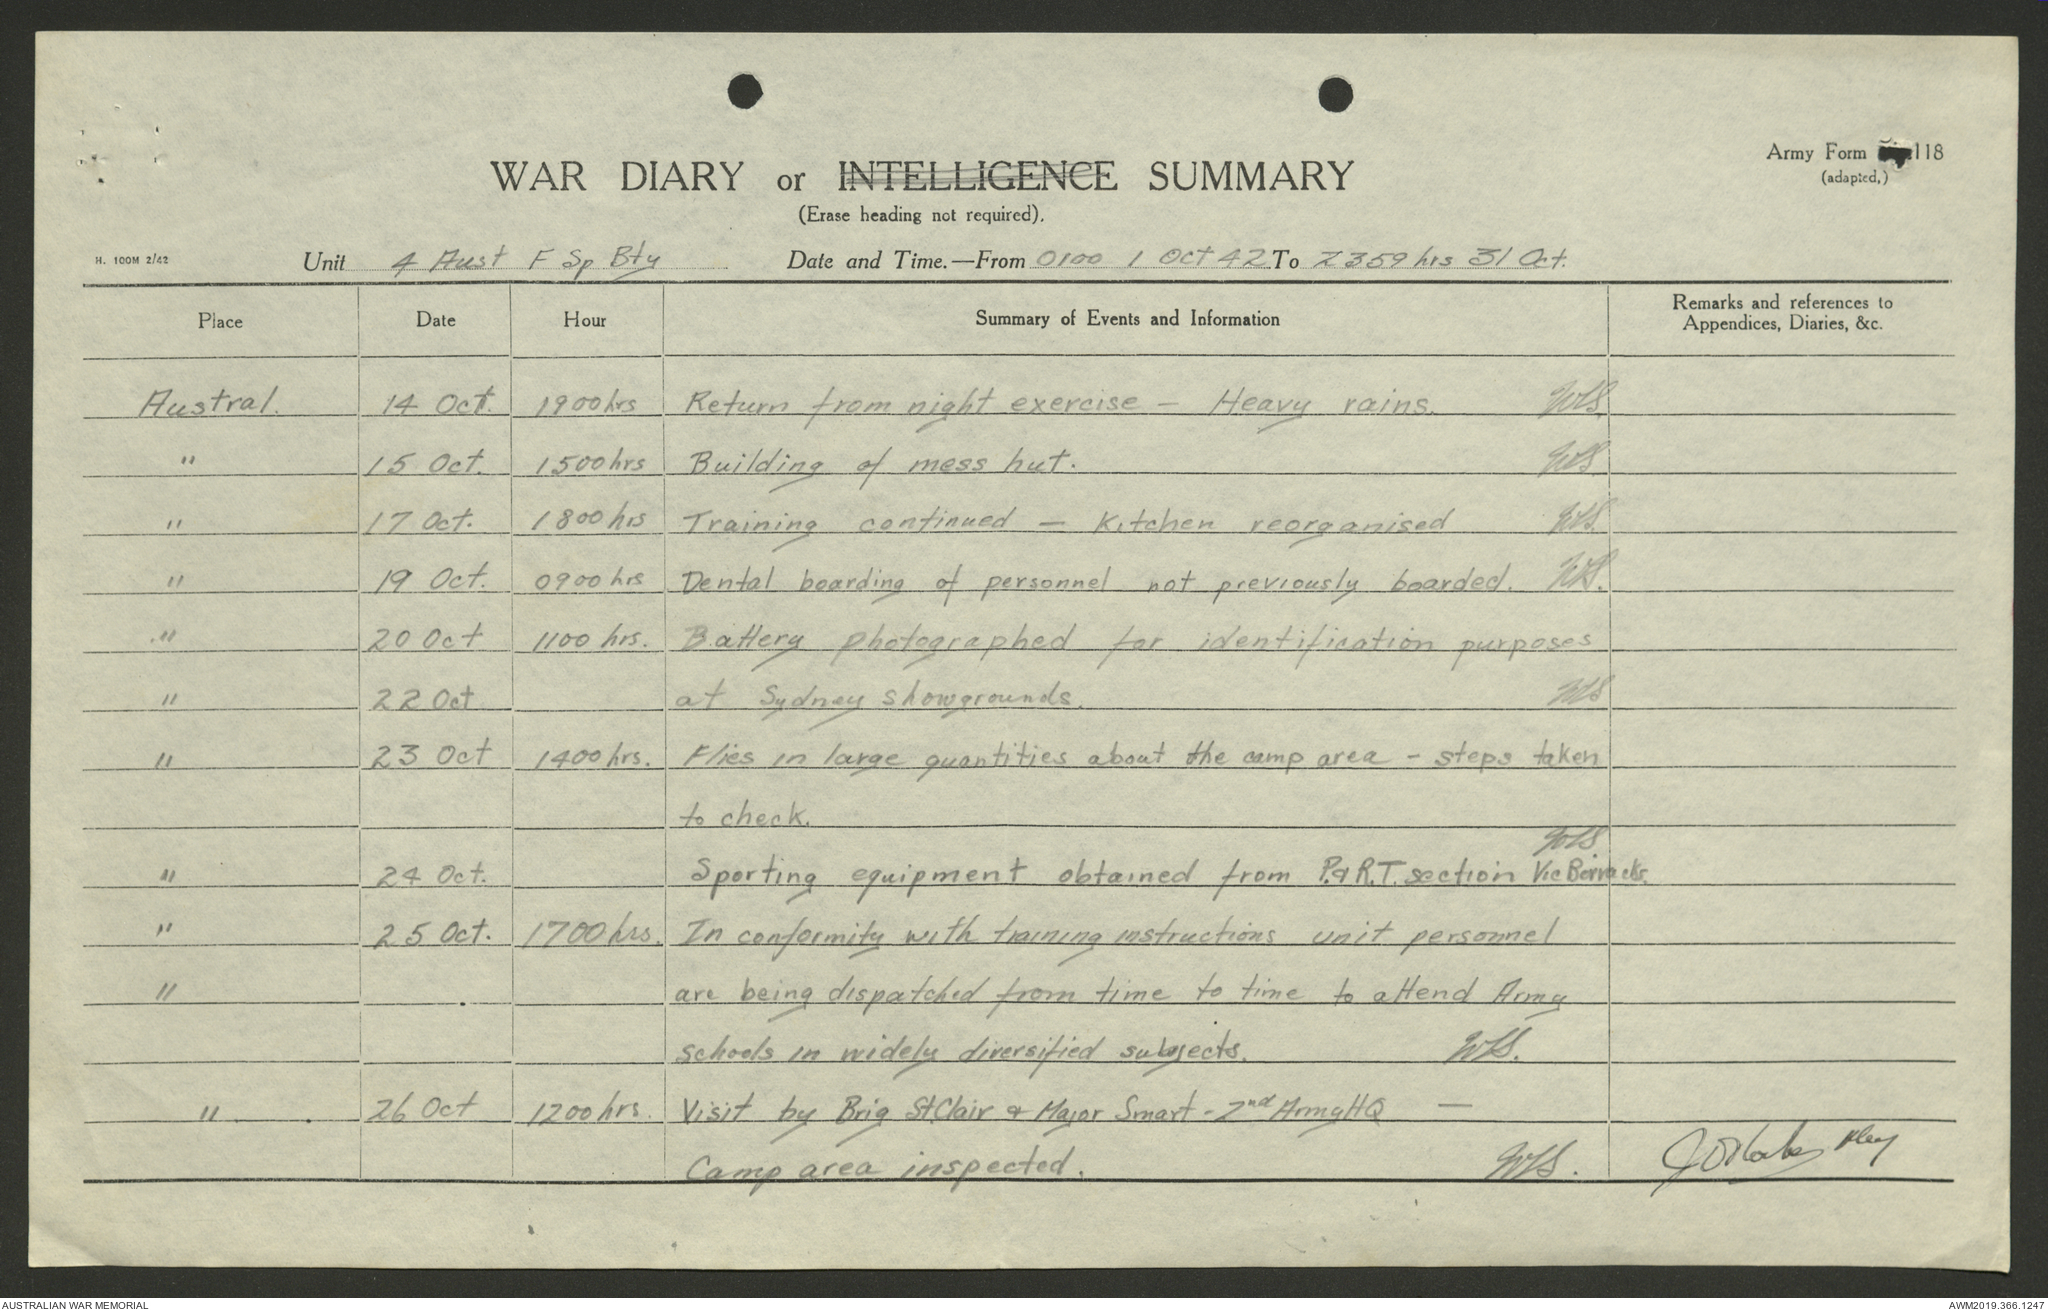 Army Form 118
(adapted,)
WAR DIARY or INTELLIGENCE SUMMARY
(Erase heading not required).
H. 100M 2/42 Unit 4 Aust F Sp Bty Date and Time.—From 0100 1 Oct 42 To 2359 hrs 31 Oct.
Place Date Hour Summary of Events and Information Remarks and references to Appendices, Diaries, &c.
Austral. 14 Oct. 1900 hrs Return from night exercise — Heavy rains. WS.
" 15 Oct. 1500 hrs Building of mess hut. WS
" 17 Oct. 1800 hrs Training continued — Kitchen reorganised WS
" 19 Oct. 0900 hrs Dental boarding of personnel not previously boarded. WS.
" 20 Oct 1100 hrs. Battery photographed for identification purposes
" 22 Oct at Sydney showgrounds. WS
" 23 Oct 1400 hrs. Flies in large quantities about the camp area - steps taken
to check.
WS
" 24 Oct. Sporting equipment obtained from P. & R.T. section Vic Barracks.
" 25 Oct. 1700 hrs. In conformity with training instructions unit personnel
" are being dispatched from time to time to attend Army
schools in widely diversified subjects. WS.
" 26 Oct 1200 hrs. Visit by Brig St.Clair & Major Smart - 2nd Army HQ —
Camp area inspected. WS.
AUSTRALIAN WAR MEMORIAL AWM2019.366.1247